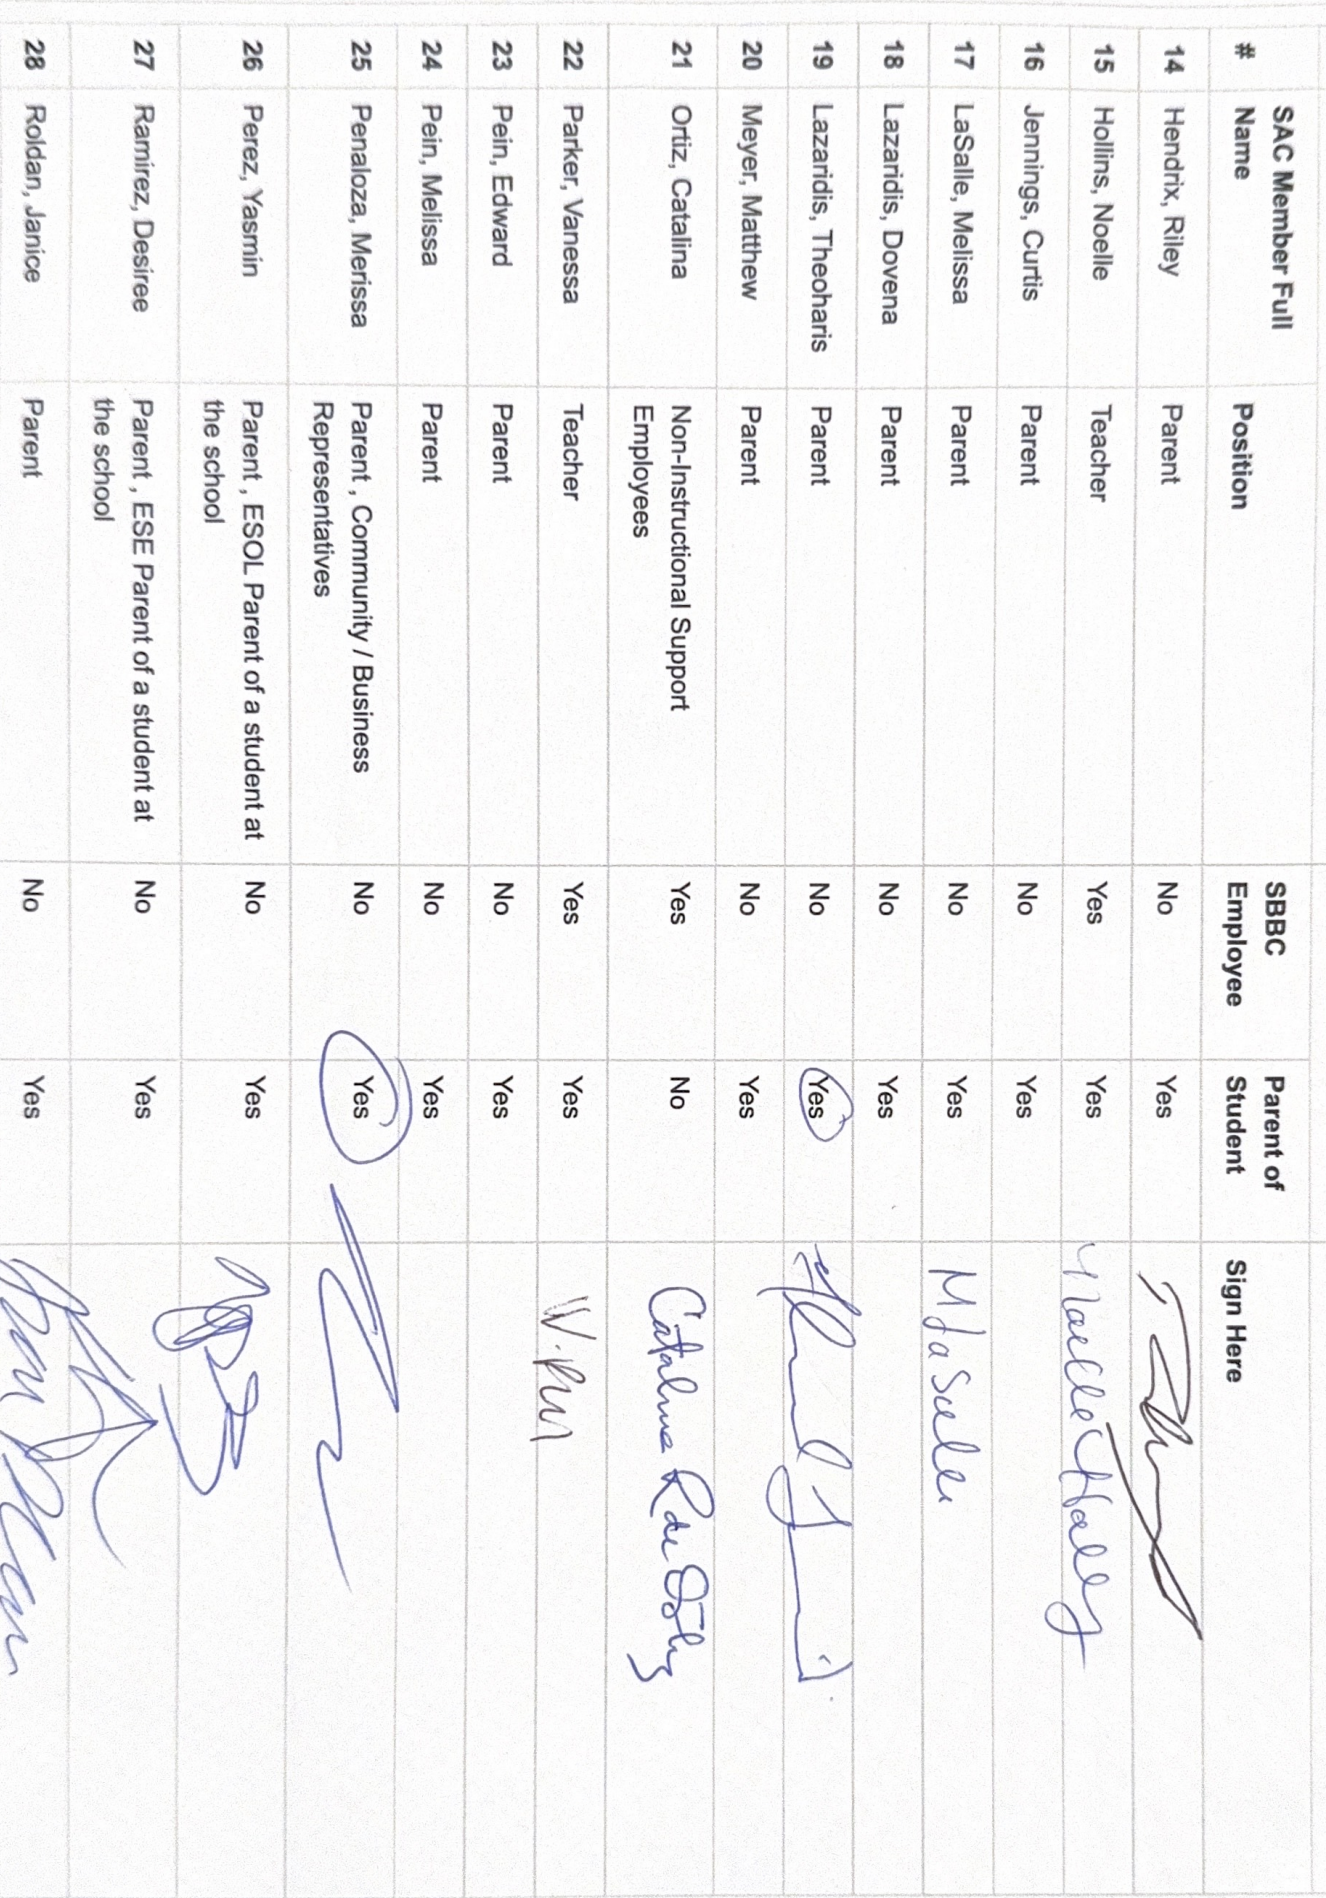 # SAC Member Full Name Position SBBC Employee Parent of Student Sign Here
14 Hendrix, Riley Parent No Yes
15 Hollins, Noelle Teacher Yes Yes Noelle
16 Jennings, Curtis Parent No Yes
17 LaSalle, Melissa Parent No Yes M LaSalle
18 Lazaridis, Dovena Parent No Yes
19 Lazaridis, Theoharis Parent No Yes
20 Meyer, Matthew Parent No Yes
21 Ortiz, Catalina Non-Instructional Support Employees Yes No Catalina R de
22 Parker, Vanessa Teacher Yes Yes
23 Pein, Edward Parent No Yes
24 Pein, Melissa Parent No Yes
25 Penaloza, Merissa Parent , Community / Business Representatives No Yes
26 Perez, Yasmin Parent , ESOL Parent of a student at the school No Yes
27 Ramirez, Desiree Parent , ESE Parent of a student at the school No Yes
28 Roldan, Janice Parent No Yes